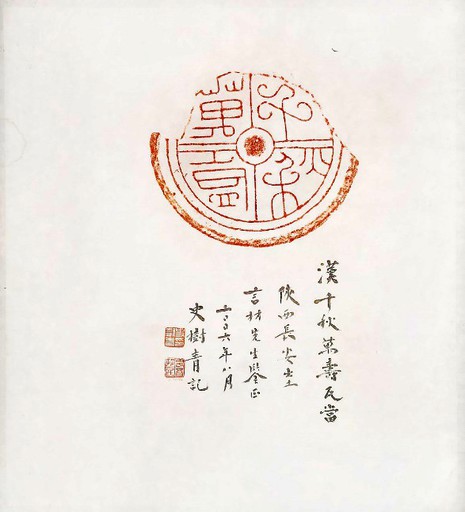 千秋萬
漢千秋萬壽瓦當
陝西長安出土
言材先生鑒正
二〇〇六年八月
史樹青記